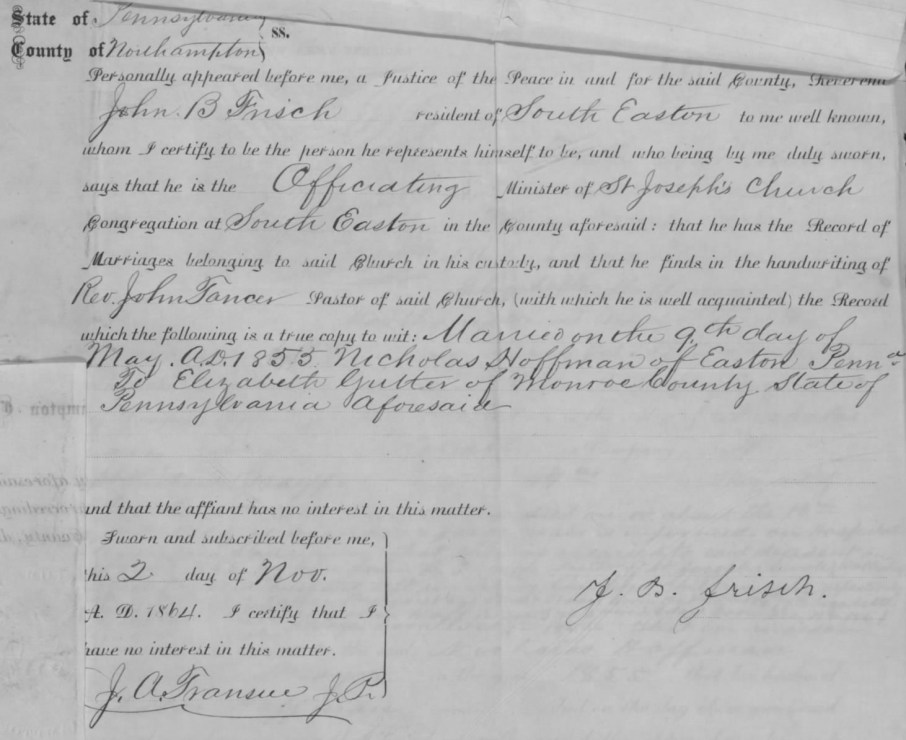 State of Pennsylvania } ss.
County of Northampton }
Personally appeared before me, a Justice of the Peace in and for the said County, Reverend
John. B Frisch resident of South Easton to me well known,
whom I certify to be the person he represents himself to be, and who being by me duly sworn,
says that he is the Officiating Minister of St Joseph's Church
Congregation at South Easton in the County aforesaid: that he has the Record of
Marriages belonging to said Church in his custody, and that he finds in the handwriting of
Rev. John Tancer Pastor of said Church, (with which he is well acquainted) the Record
which the following is a true copy to wit: Married on the 9th day of
May. A.D. 1855 Nicholas Hoffman of Easton Penna
To Elizabeth Gutter of Monroe County State of
Pennsylvania aforesaid
and that the affiant has no interest in this matter.
Sworn and subscribed before me,
this 2 day of Nov.
A. D. 1864. I certify that I
have no interest in this matter.
J. B. Frisch.
J. A. Transue J. P.